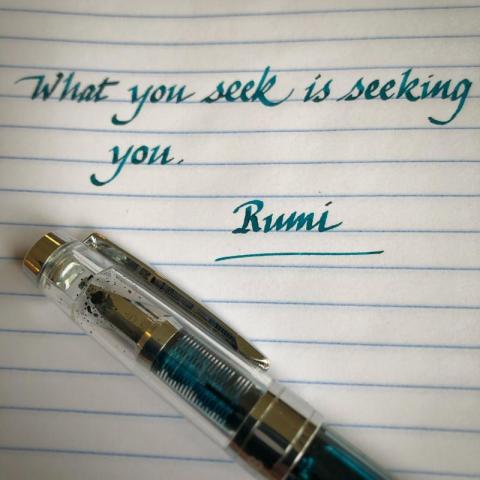 What you seek is seeking
you.
Rumi